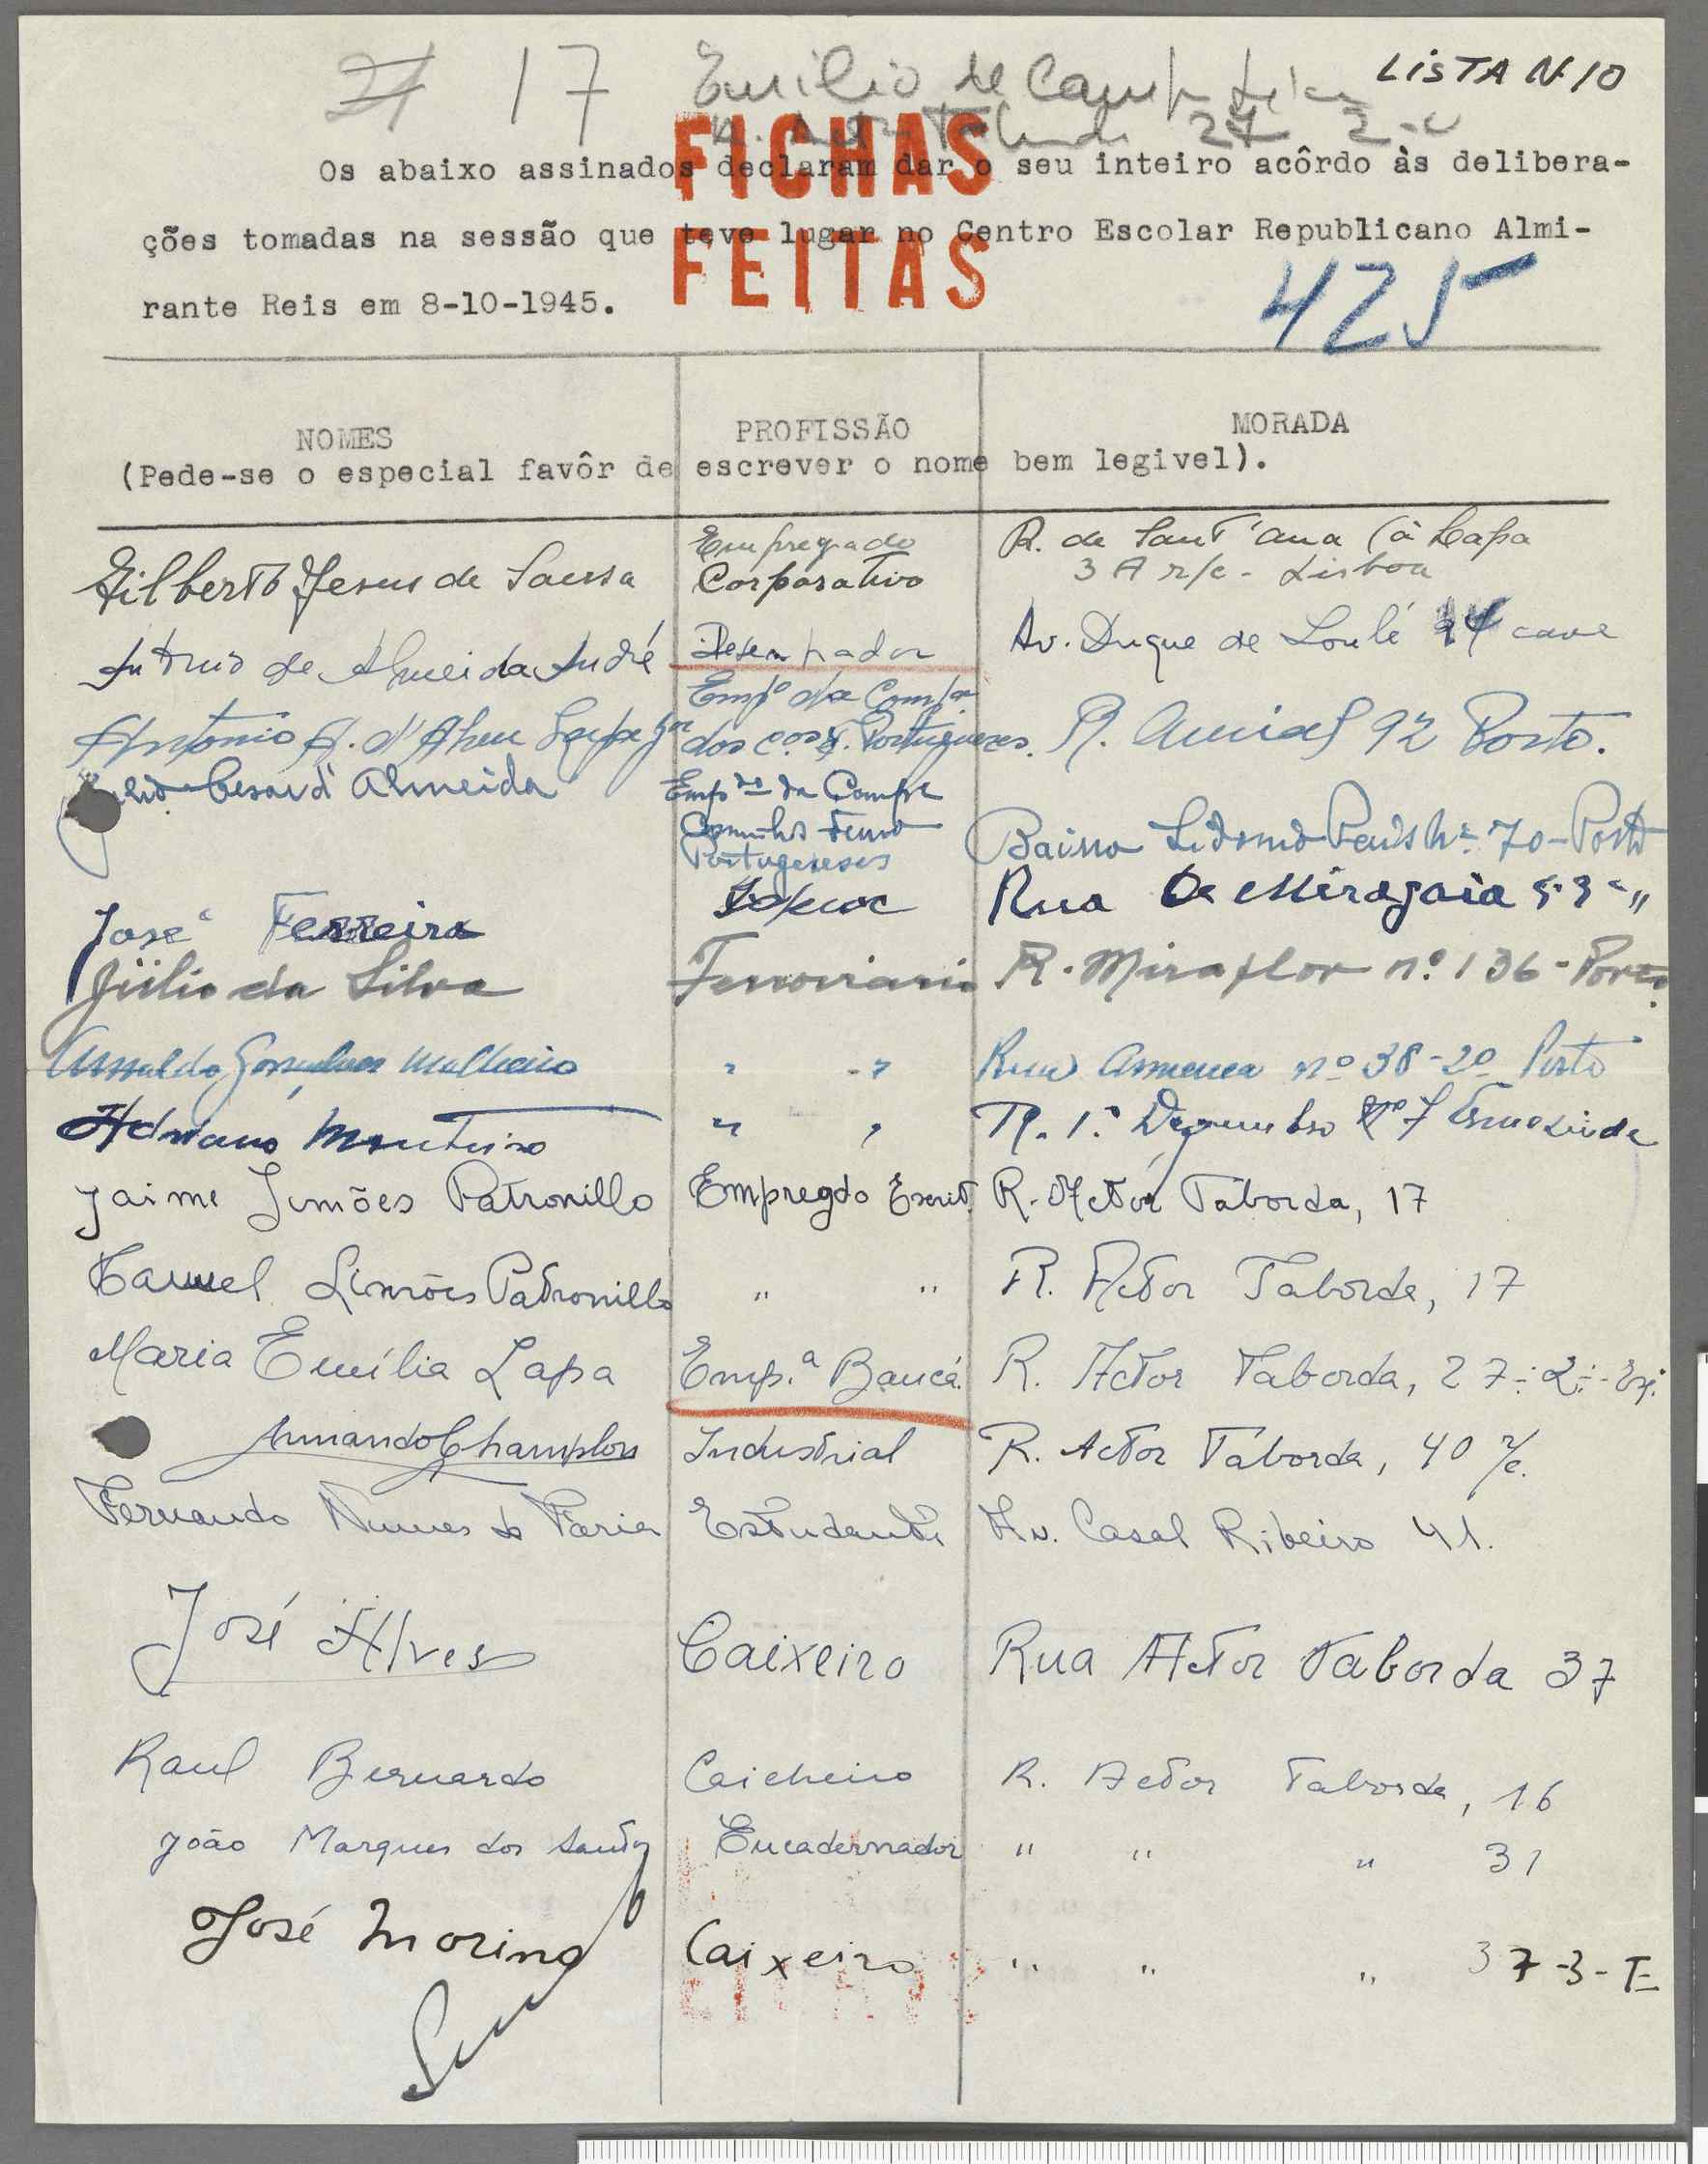 17 Emilio de LISTA Nº 10
27 2-
FICHAS
FEITAS
Os abaixo assinados declaram dar o seu inteiro acôrdo às delibera-
ções tomadas na sessão que teve lugar no Centro Escolar Republicano Almi-
rante Reis em 8-10-1945.
425
NOMES PROFISSÃO MORADA
(Pede-se o especial favôr de escrever o nome bem legivel).
Gilberto Jesus de Sousa Empregado Corporativo R. de Sant'Ana (à Lapa
3 A r/c - Lisboa
de Almeida André Desenhador Av. Duque de Loulé cave
Antonio A. d'Abreu Empº da Compª
dos Portugueses. R. Amial 92 Porto.
Cesar d'Almeida Empdo da Compª
Caminhos Ferro
Portugueses Bairro Sidonio Paes Nº 70-Porto
José Ferreira Rua de Miragaia 53 - "
Júlio da Silva Ferroviario R. Miraflor nº 136-Porto
Arnaldo Gonçalves Malheiro " " Rua Armenia nº 38-2º Porto
Adriano Monteiro " " R. 1º Dezembro Nº 7 Ermezinde
Jaime Simões Patronillo Empregdo Escrit. R. Actor Taborda, 17
Simões Patronillo " " R. Actor Taborda, 17
Maria Emília Lapa Emp.ª Bancá. R. Actor Taborda, 27-2º-Esq.
Armando Industrial R. Actor Taborda, 40 r/c.
Fernando Nunes de Faria Estudante Av. Casal Ribeiro 41.
José Alves Caixeiro Rua Actor Taborda 37
Raul Bernardo Caicheiro R. Actor Taborda, 16
João Marques dos Santos Encadernador " " " 31
José Morino Caixeiro " " " 37-3-E